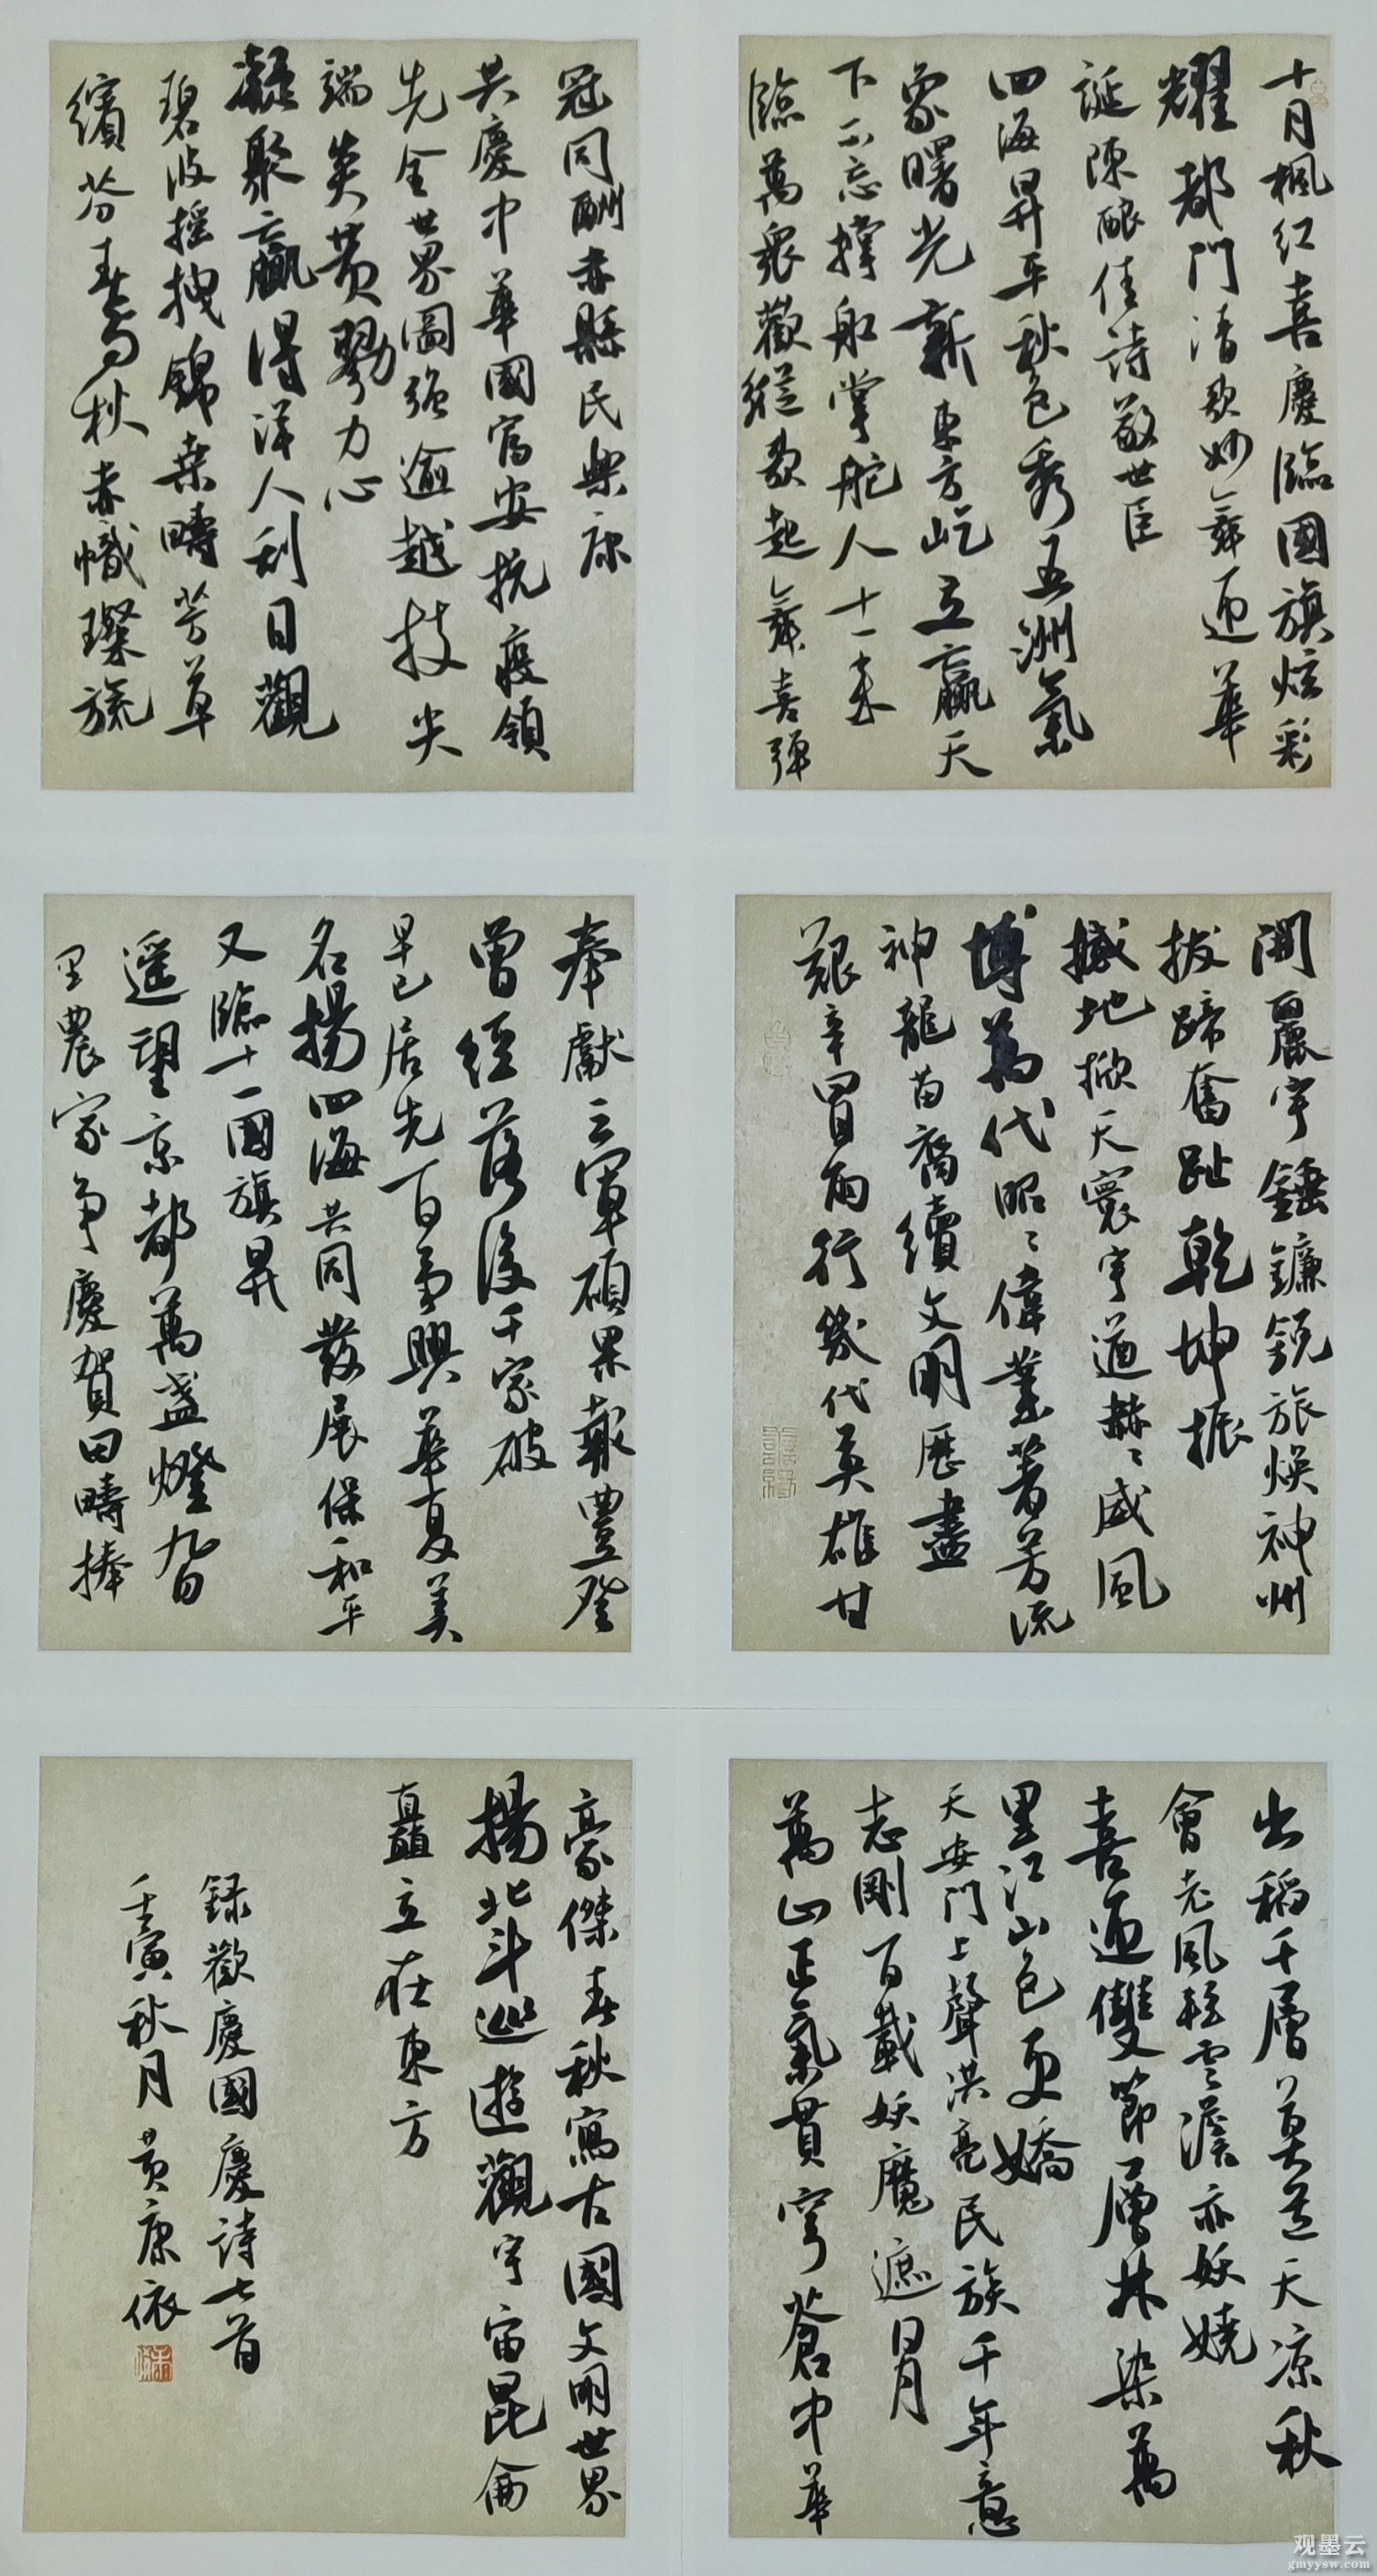 十月楓红喜慶臨國旗炫彩
耀都門清歌妙舞迎華
誕陳酿佳詩敬世臣
四海昇平秋色秀五洲氣
象曙光新東方屹立贏天
下不忘撑船掌舵人十一来
臨萬衆歡縱歌起舞喜彈
冠同酬赤縣民樂康
共慶中華國富安抗疫領
先全世界圖强逾越技尖
端炎黄勠力心
凝聚赢得洋人刮目觀
碧波摇拽錦桑疇芳草
繽芬春與秋赤幟璨旒
開麗宇錘鐮銳旅焕神州
拔蹄奮趾乾坤振
撼地掀天寰宇遒赫〻威風
博萬代昭〻偉業著芳流
神龍苗裔續文明歷盡
艱辛冒雨行幾代英雄甘
奉獻三軍碩果報豐登
曾經落後千家破
早已居先百事興華夏美
名揚四海共同發展保和平
又臨十一國旗昇
遥望京都萬盞燈九百
里農家争慶賀田疇捧
出稻千層莫道天凉秋
會老風輕雲淡亦妖嬈
喜迎雙節層林染萬
里江山色更嬌
天安門上聲洪亮民族千年意
志剛百載妖魔遮日月
萬山正氣貫穹蒼中華
豪傑春秋寫古國文明世界
揚北斗巡遊觀宇宙昆侖
矗立在東方
録歡慶國慶詩七首
壬寅秋月黄康依
观墨云
gmyysw.com